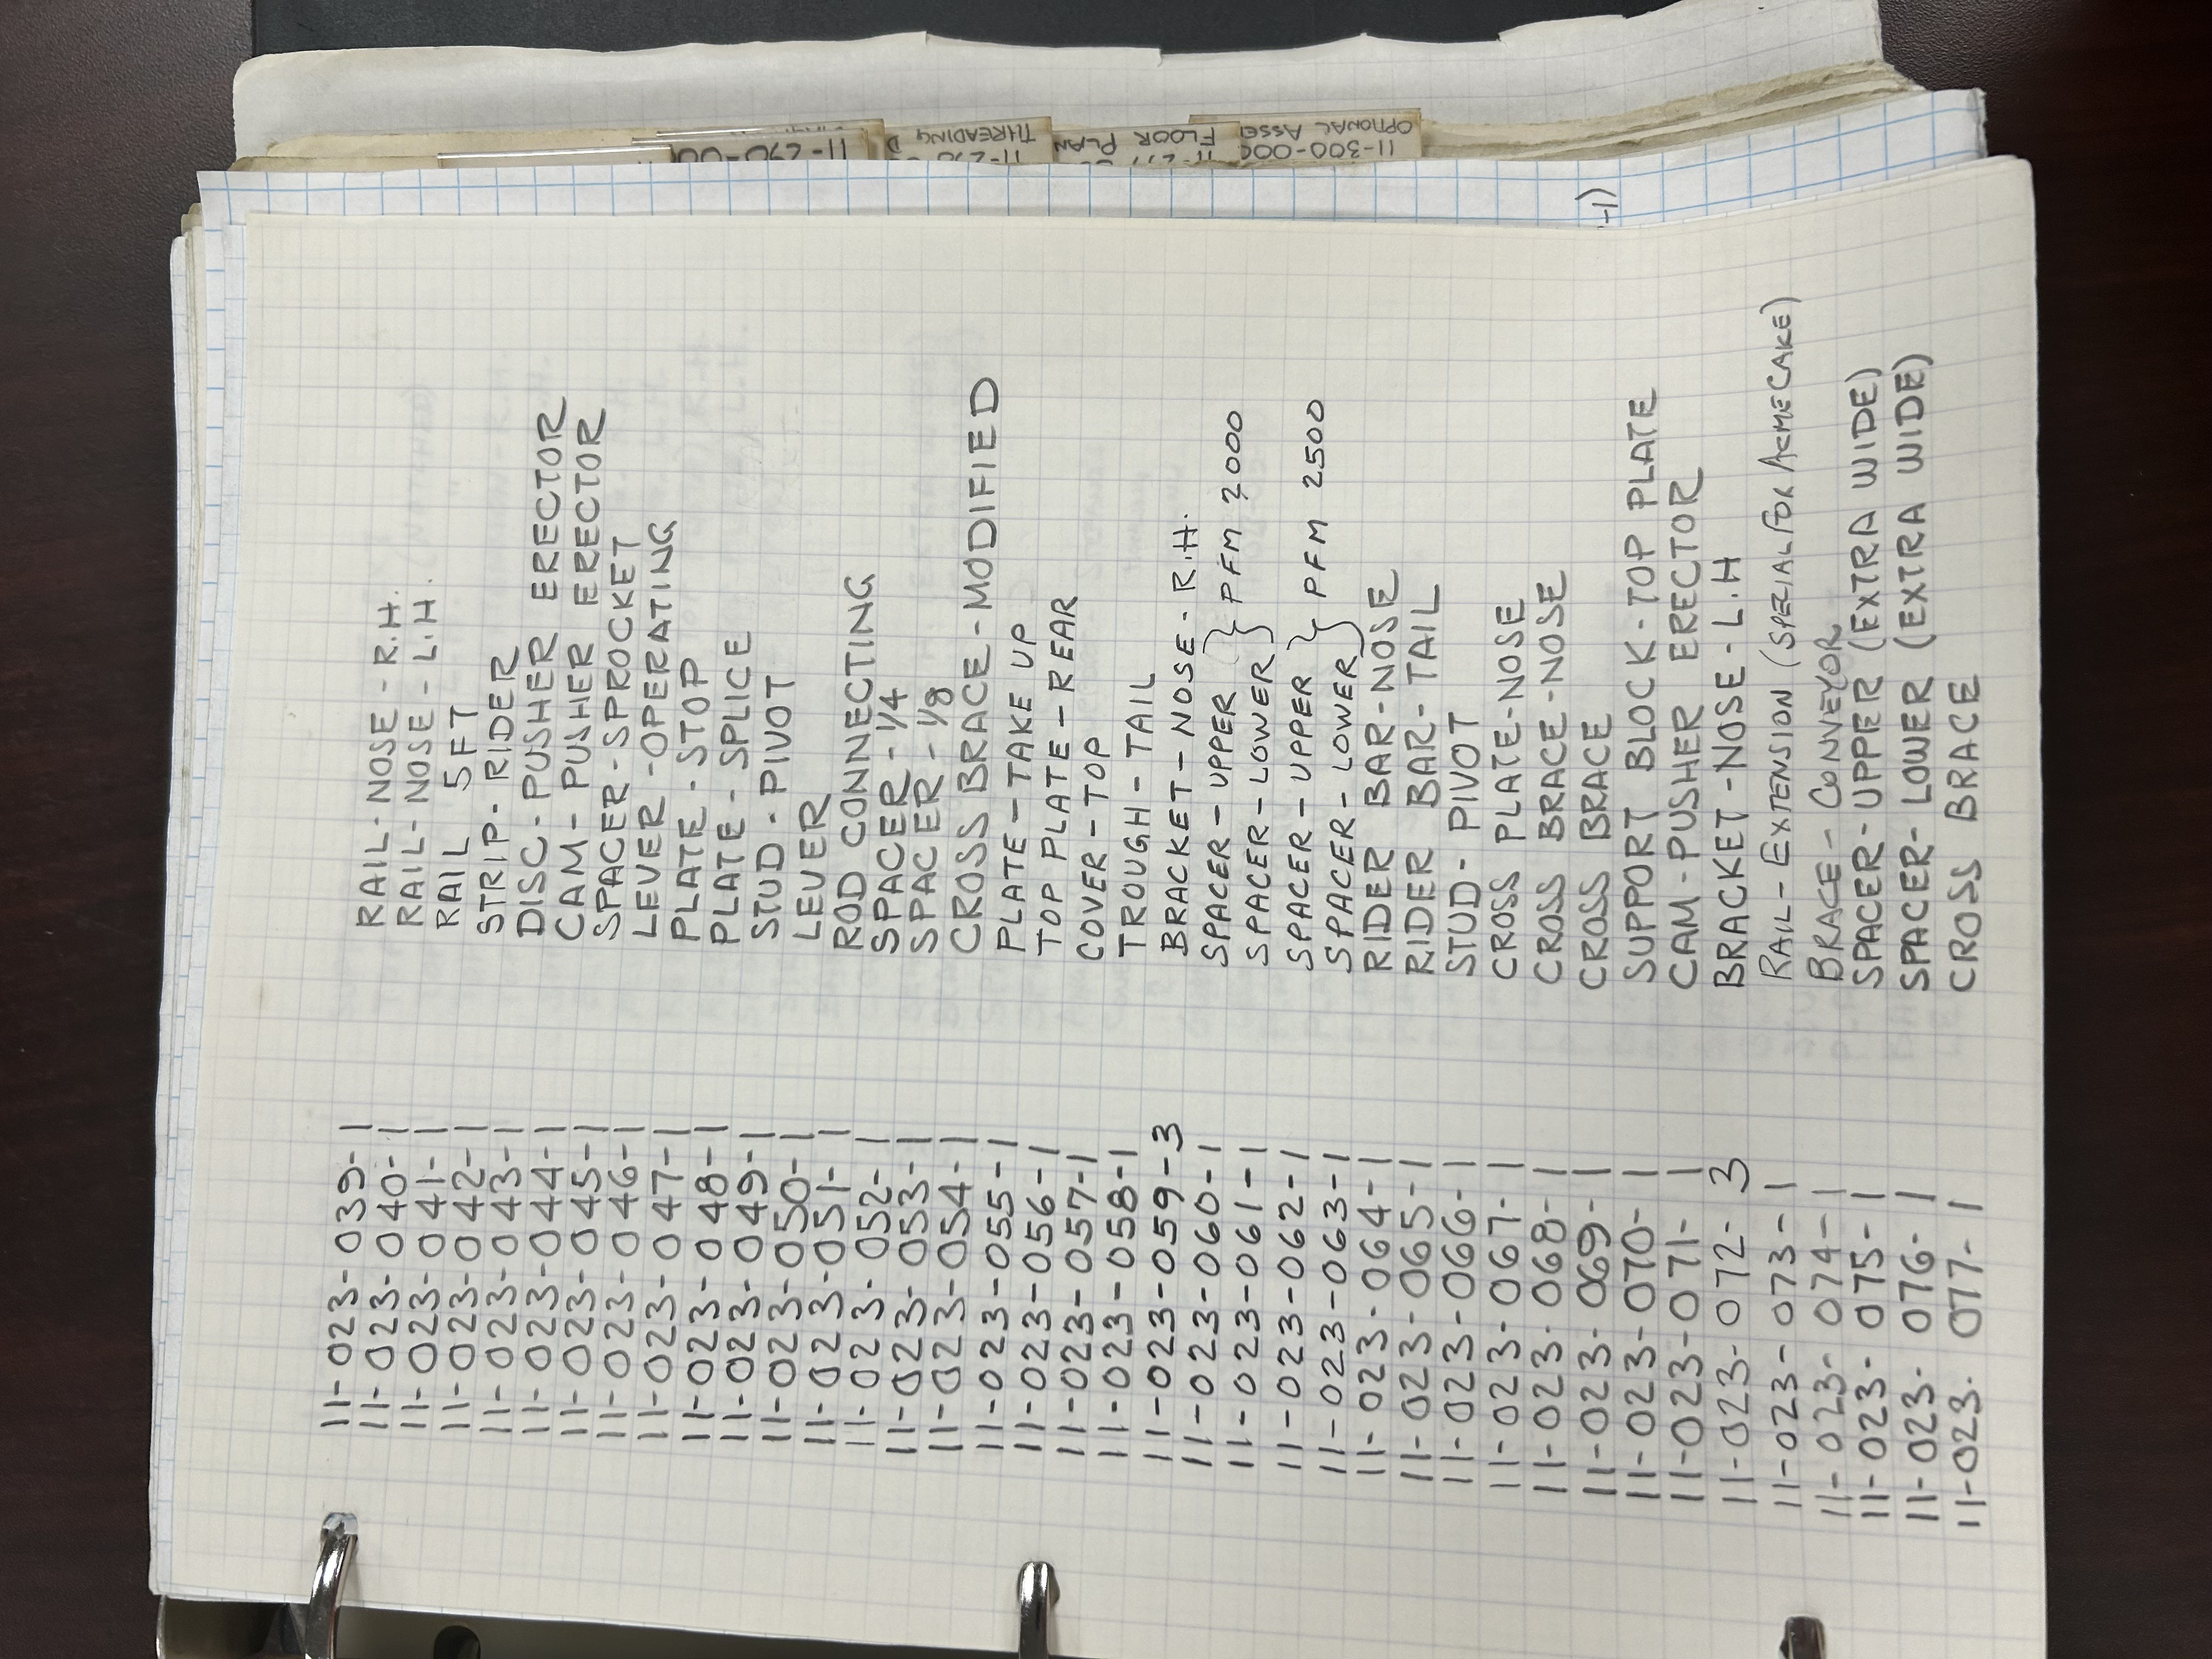 11-023-039-1 RAIL-NOSE-R.H.
11-023-040-1 RAIL-NOSE-L.H.
11-023-041-1 RAIL 5FT
11-023-042-1 STRIP-RIDER
11-023-043-1 DISC-PUSHER ERECTOR
11-023-044-1 CAM-PUSHER ERECTOR
11-023-045-1 SPACER-SPROCKET
11-023-046-1 LEVER-OPERATING
11-023-047-1 PLATE-STOP
11-023-048-1 PLATE-SPLICE
11-023-049-1 STUD-PIVOT
11-023-050-1 LEVER
11-023-051-1 ROD CONNECTING
11-023-052-1 SPACER-1/4
11-023-053-1 SPACER-1/8
11-023-054-1 CROSS BRACE-MODIFIED
11-023-055-1 PLATE-TAKE UP
11-023-056-1 TOP PLATE-REAR
11-023-057-1 COVER-TOP
11-023-058-1 TROUGH-TAIL
11-023-059-3 BRACKET-NOSE-R.H.
11-023-060-1 SPACER-UPPER } PFM 2000
11-023-061-1 SPACER-LOWER
11-023-062-1 SPACER-UPPER } PFM 2500
11-023-063-1 SPACER-LOWER
11-023-064-1 RIDER BAR-NOSE
11-023-065-1 RIDER BAR-TAIL
11-023-066-1 STUD-PIVOT
11-023-067-1 CROSS PLATE-NOSE
11-023-068-1 CROSS BRACE-NOSE
11-023-069-1 CROSS BRACE
11-023-070-1 SUPPORT BLOCK-TOP PLATE
11-023-071-1 CAM-PUSHER ERECTOR
11-023-072-3 BRACKET-NOSE-L.H
11-023-073-1 RAIL-EXTENSION (SPECIAL FOR ACME CAKE)
11-023-074-1 BRACE-CONVEYOR
11-023-075-1 SPACER-UPPER (EXTRA WIDE)
11-023-076-1 SPACER-LOWER (EXTRA WIDE)
11-023-077-1 CROSS BRACE
-1)
THREADING
FLOOR PLAN
11-300-00
OPTIONAL